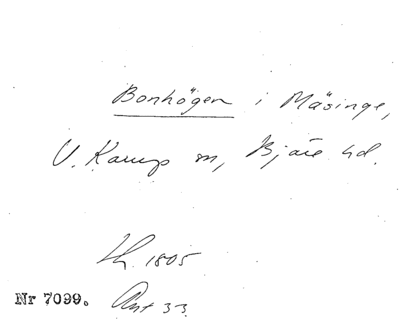 Bonhögen i Mäsinge,
V. Karup sn, Bjäre hd.
Th. 1805
Nr 7099. Ant 33